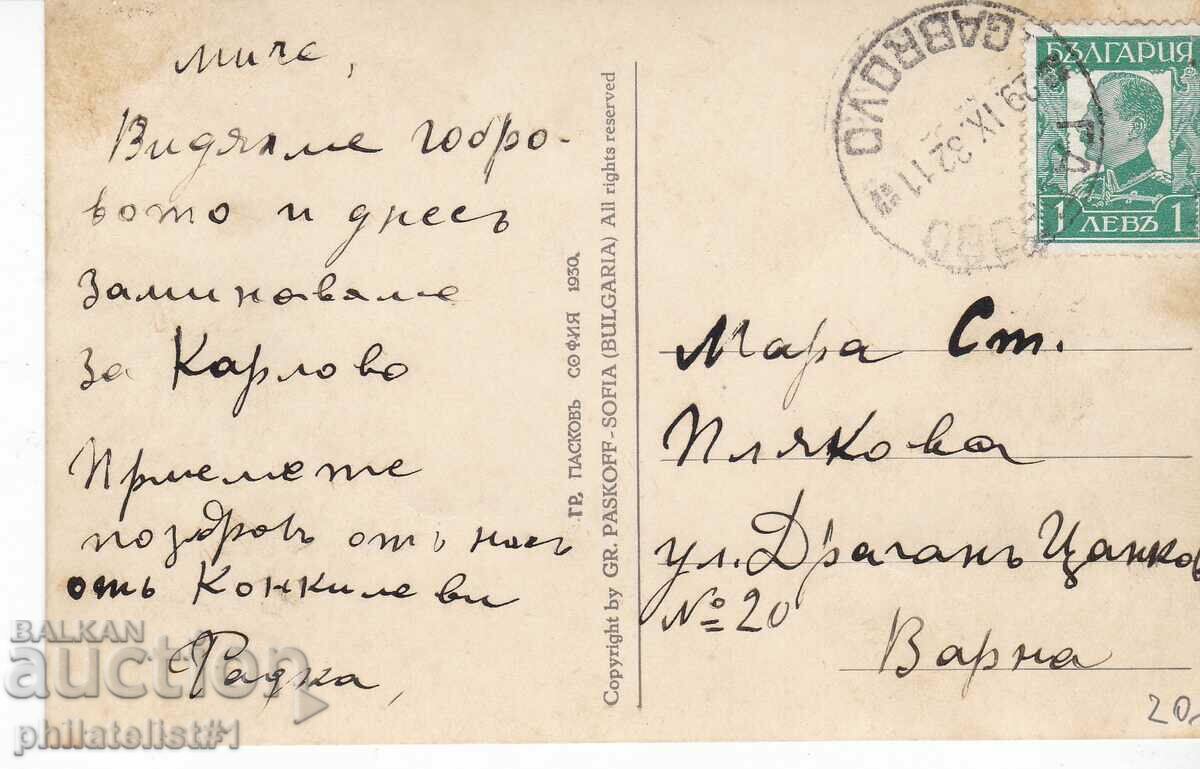 Мича,
Видяхме габро-
вото и днесъ
заминаваме
за Карлово
Приемете
поздравъ отъ насъ
отъ Конкилеви
Радка,
ГР. ПАСКОВЪ СОФИЯ 1930.
Copyright by GR. PASKOFF-SOFIA (BULGARIA) All rights reserved
GABROVO
29.IX.32.11
БЪЛГАРИЯ
1 ЛЕВЪ 1
Мара Ст.
Плякова
ул. Драганъ Цанков
№ 20
Варна
20
BALKAN
auction
philatelist#1